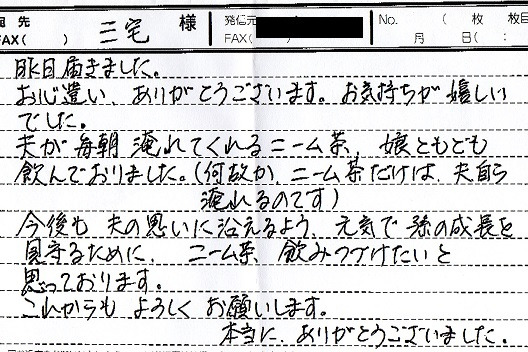 宛先 三宅 様 発信元 No. ( 枚 枚目
FAX( ) FAX( 月 日( :
昨日届きました。
お心遣い、ありがとうございます。お気持ちが嬉しい
でした。
夫が毎朝淹れてくれるニーム茶、娘ともども
飲んでおりました。(何故か、ニーム茶だけは、夫自ら
淹れるのです)
今後も夫の思いに沿えるよう、元気で孫の成長を
見守るために、ニーム茶、飲みつづけたいと
思っております。
これからもよろしくお願いします。
本当に、ありがとうございました。